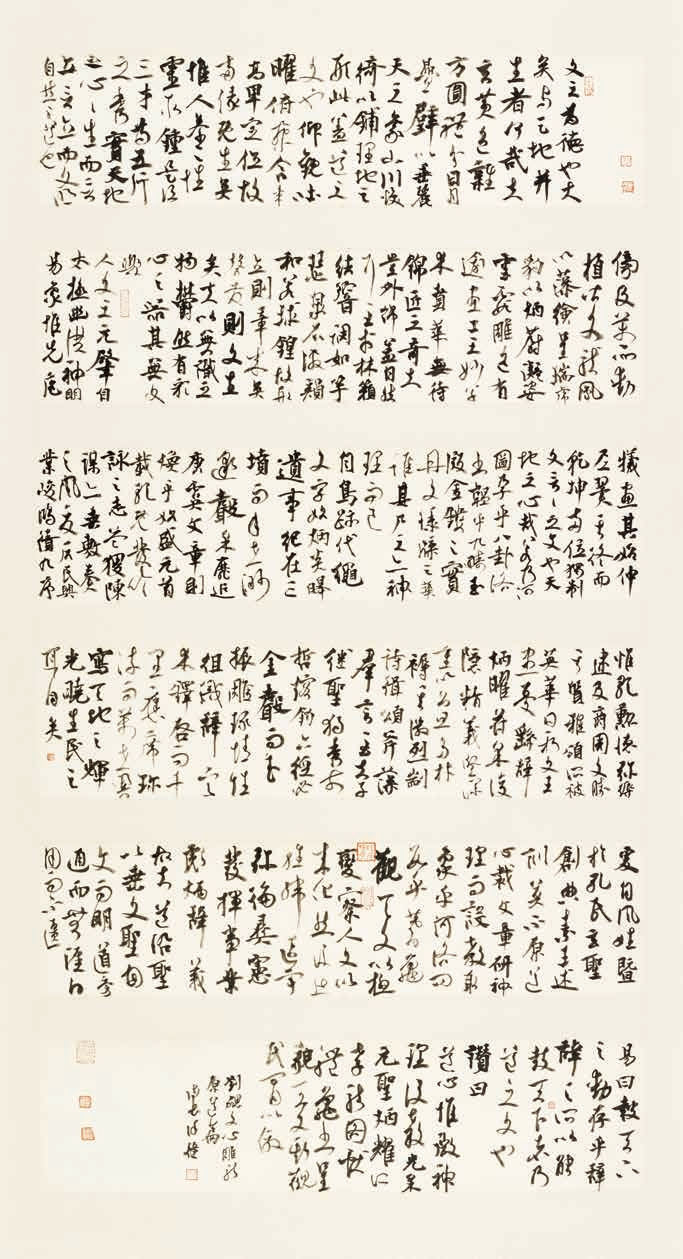 文之為德也大
矣與天地并
生者何哉夫
玄黃色雜
方圓體分日月
疊璧以垂麗
天之象山川煥
綺以鋪理地之
形此蓋道之
文也仰觀吐
曜俯察含章
高卑定位故
兩儀既生矣
惟人參之性
靈所鍾是謂
三才為五行
之秀實天地
之心心生而言
立言立而文明
自然之道也
傍及萬品動
植皆文龍鳳
以藻繪呈瑞虎
豹以炳蔚凝姿
雲霞雕色有
逾畫工之妙草
木賁華無待
錦匠之奇夫
豈外飾蓋自然
耳至於林籟
結響調如竽
瑟泉石激韻
和若球鍠故形
立則章成矣
聲發則文生
矣夫以無識之
物鬱然有彩
心之器其無文
歟
人文之元肇自
太極幽讚神明
易象惟先庖
犧畫其始仲
尼翼其終而
乾坤兩位獨制
文言言之文也天
地之心哉若乃河
圖孕乎八卦洛
書韞乎九疇玉
版金鏤之實
丹文綠牒之華
誰其尸之亦神
理而已
自鳥跡代繩
文字始炳炎皞
遺事紀在三
墳而年世渺
邈聲采靡追
唐虞文章則
煥乎始盛元首
載歌既發吟
詠之志益稷陳
謨亦垂敷奏
之風夏后氏興
業峻鴻績九序
惟歌勳德彌縟
逮及商周文勝
其質雅頌所被
英華日新文王
患憂繇辭
炳曜符采複
隱精義堅深
重以公旦多材
褥其徽烈制
詩緝頌斧藻
群言至夫子
繼聖獨秀前
哲鎔鈞六經必
金聲而玉
振雕琢情性
組織辭令
木鐸啟而千
里應席珍
流而萬世響
寫天地之輝
光曉生民之
耳目矣
爰自風姓暨
於孔氏玄聖
創典素王述
訓莫不原道
心裁文章研神
理而設教取
象乎河洛問
數乎蓍龜
觀天文以極
變察人文以
成化然後能
經緯區宇
彌綸彝憲
發揮事業
彪炳辭義
故知道沿聖
以垂文聖因
文而明道旁
通而無滯日
用而不匱
易曰鼓天下
之動存乎辭
辭之所以能
鼓天下者乃
道之文也
讚曰
道心惟微神
理設教光采
元聖炳耀仁
孝龍圖獻
體龜書呈
貌天文斯觀
民胥以傚
劉勰文心雕龍
原道篇